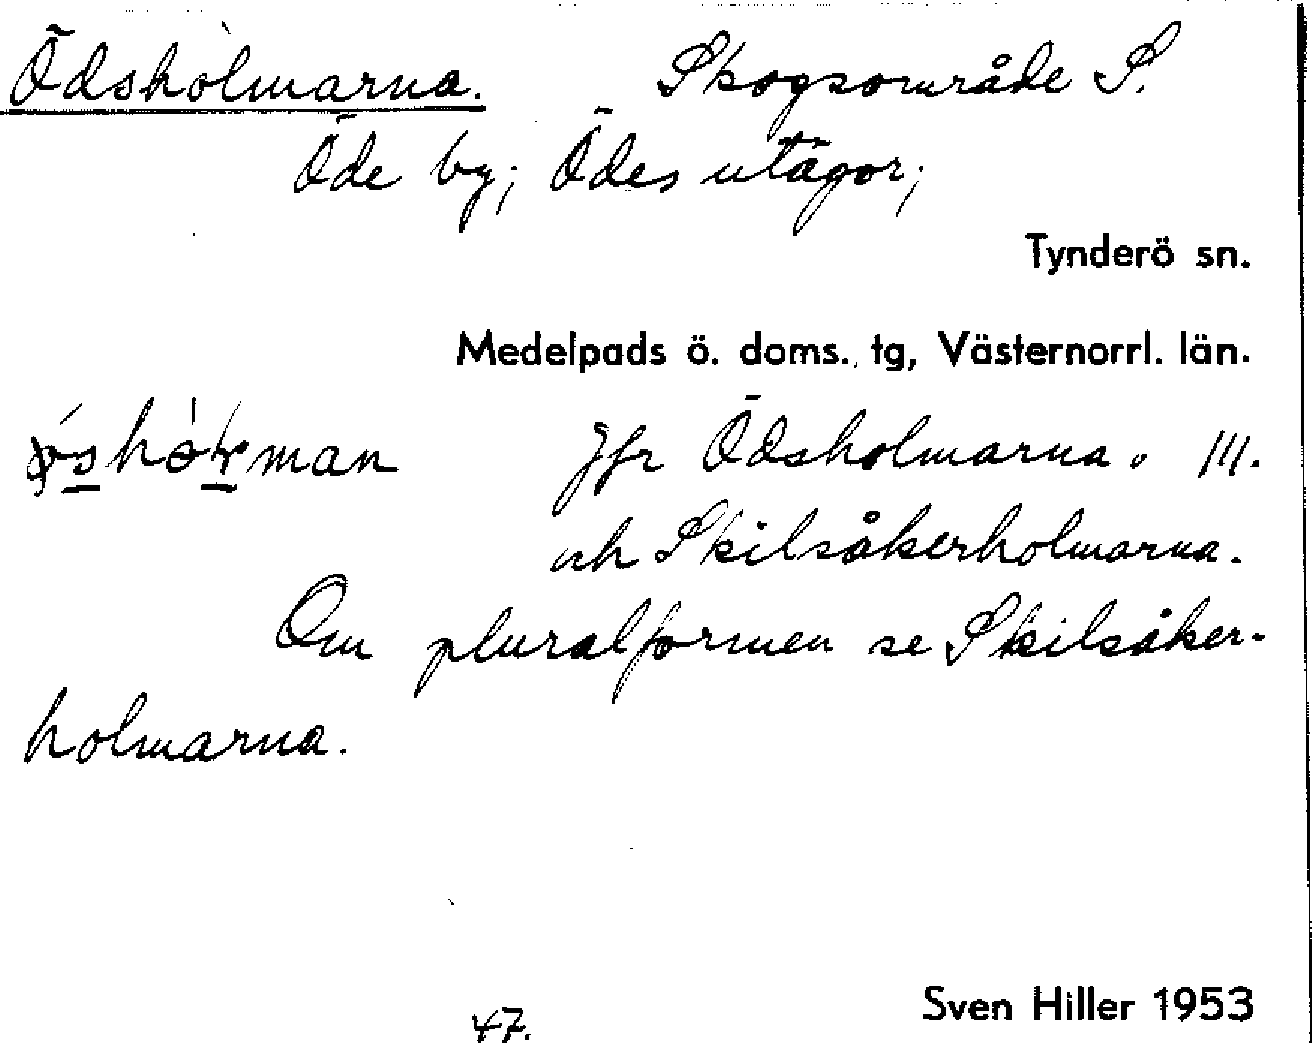 Ödsholmarna. Skogsområde S.
Öde by; Ödes utägor;
Tynderö sn.
Medelpads ö. doms. tg, Västernorrl. län.
Jfr Ödsholmarna. III.
och Skilsåkerholmarna.
Om pluralformen se Skilsåker-
holmarna.
47.
Sven Hiller 1953